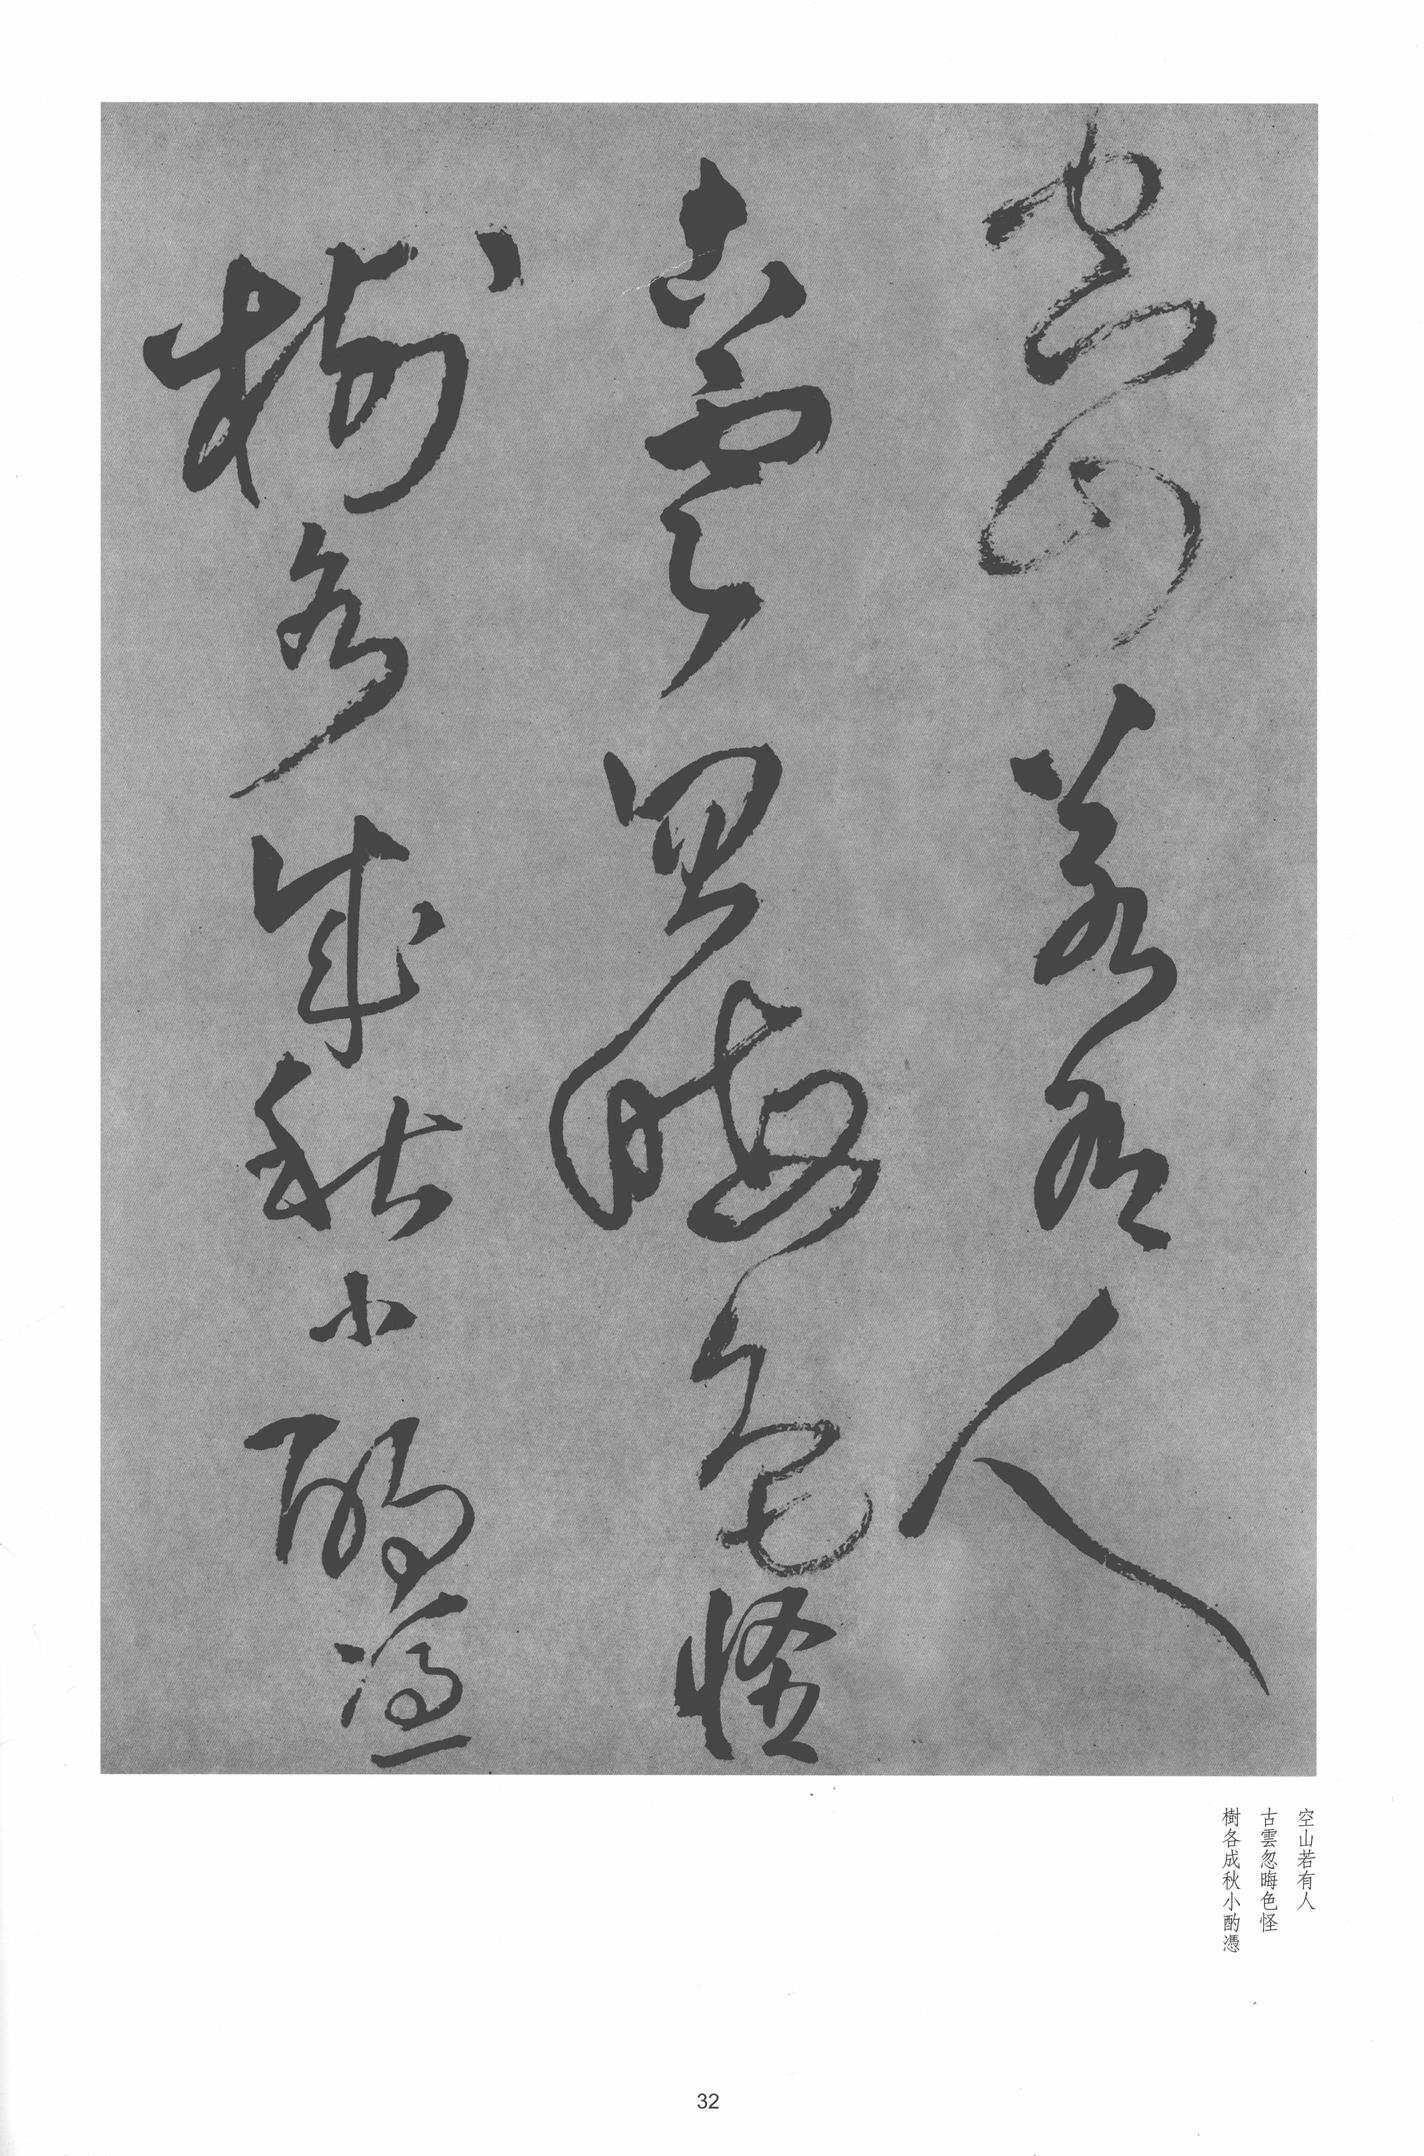 空山若有人
古雲忽晦色怪
樹各成秋小酌憑
空山若有人
古雲忽晦色怪
樹各成秋小酌憑
32